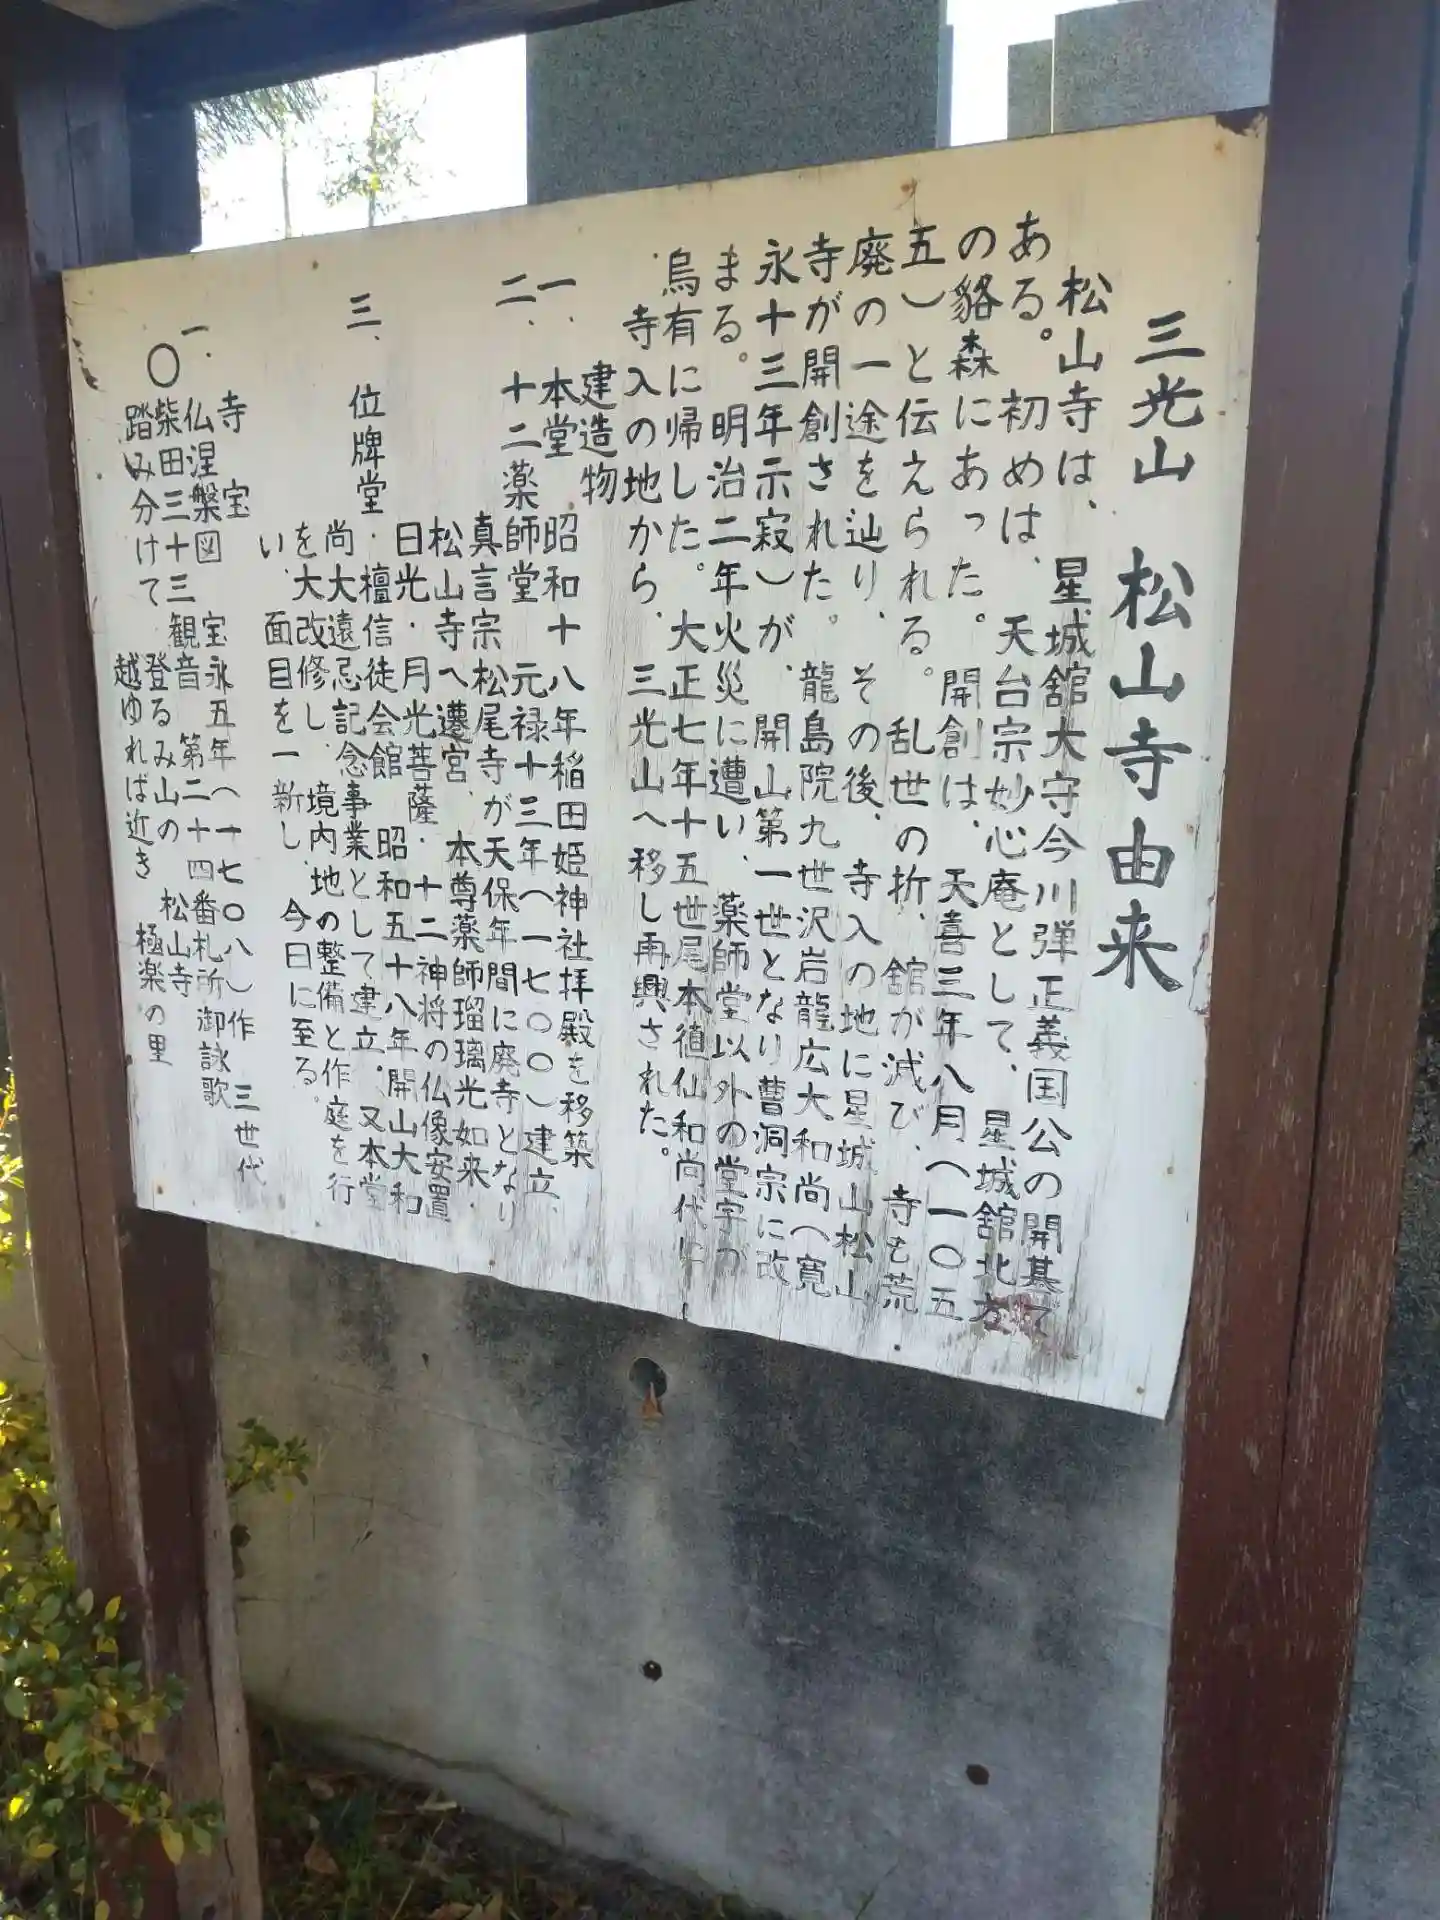 三光山 松山寺由来
松山寺は、星城舘大守今川弾正義国公の開基で
ある。初めは、天台宗妙心庵として、星城舘北方
の貉森にあった。開創は、天喜三年八月(一〇五
五)と伝えられる。乱世の折、舘が滅び、寺も荒
廃の一途を辿り、その後、寺入の地に星城山松山
寺が開創された。龍島院九世沢岩龍広大和尚(寛
永十三年示寂)が、開山第一世となり曹洞宗に改
まる。明治二年火災に遭い、薬師堂以外の堂宇が
烏有に帰した。大正七年十五世尾本徝仙和尚代に
寺入の地から、三光山へ移し再興された。
建造物
一、本堂 昭和十八年稲田姫神社拝殿を移築
二、十二薬師堂 元禄十三年(一七〇〇)建立、
真言宗松尾寺が天保年間に廃寺となり
松山寺へ遷宮、本尊薬師瑠璃光如来・
日光・月光菩薩・十二神将の仏像安置
三、位牌堂・檀信徒会館 昭和五十八年開山大和
尚大遠忌記念事業として建立。又本堂
を大改修し、境内地の整備と作庭を行
い、面目を一新し、今日に至る。
寺宝
一、仏涅槃図 宝永五年(一七〇八)作 三世代
〇柴田三十三観音 第二十四番札所御詠歌
登るみ山の 松山寺
踏み分けて 越ゆれば近き 極楽の里